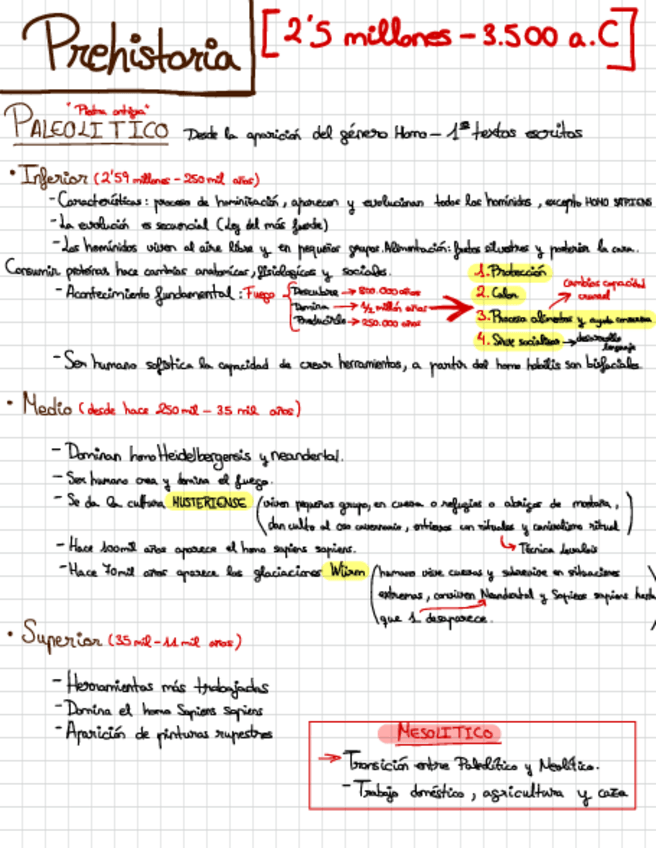 Prehistoria [2'5 millones - 3.500 a.C]
"Piedra antigua"
PALEOLITICO Desde la aparición del género Homo - 1ºs textos escritos
• Inferior (2'59 millones - 250 mil años)
- Características: proceso de hominización, aparecen y evolucionan todos los homínidos, excepto HOMO SAPIENS
- La evolución es secuencial (Ley del más fuerte)
- Los homínidos viven al aire libre y en pequeños grupos. Alimentación: frutos silvestres y posterior la caza.
Consumir proteínas hace cambios anatomicos, fisiologicos y sociales.
- Acontecimiento fundamental: Fuego
Descubre → 800.000 años
Domina → 1/2 millón años
Producirlo → 250.000 años
1. Protección
2. Calor
3. Procesa alimentos y ayuda conserva
4. Sirve socializar → desarrollo lenguaje
cambios capacidad craneal
- Ser humano sofistica la capacidad de crear herramientas, a partir del homo habilis son bifaciales.
• Medio (desde hace 250 mil - 35 mil años)
- Dominan homo Heidelbergensis y neandertal.
- Ser humano crea y domina el fuego.
- Se da la cultura MUSTERIENSE (viven pequeños grupo, en cueva o refugios o abrigos de montaña,
dan culto al oso cavernario, entierros con rituales y canibalismo ritual)
- Hace 100mil años aparece el homo sapiens sapiens.
↳ Técnica levalois
- Hace 70mil años aparece las glaciaciones Würm (humano vive cuevas y sobrevive en situaciones
extremas, conviven Neandertal y Sapiens sapiens hasta
que 1 desaparece.
• Superior (35 mil - 11 mil años)
- Herramientas más trabajadas
- Domina el homo Sapiens Sapiens
- Aparición de pinturas rupestres
MESOLITICO
→ Transición entre Paleolítico y Neolítico.
- Trabajo doméstico, agricultura y caza